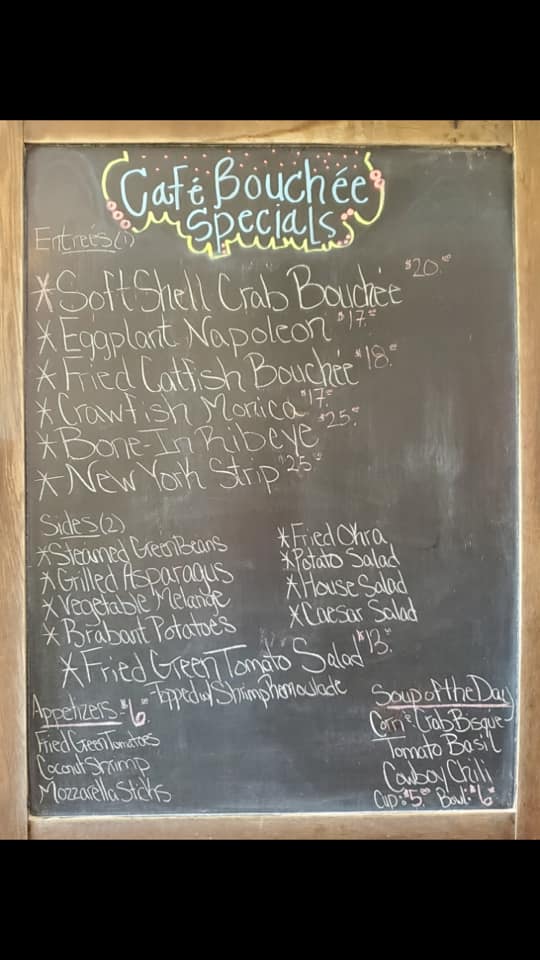 Café Bouchée
Specials
Entreés(1)
*Soft Shell Crab Bouchée $20.00
*Eggplant Napoleon $17.00
*Fried Catfish Bouchée $18.00
*Crawfish Monica $17.00
*Bone-In Ribeye $25.00
*New York Strip $25.00
Sides(2)
*Steamed Green Beans
*Grilled Asparagus
*Vegetable Melange
*Brabant Potatoe's
*Fried Okra
*Potato Salad
*House Salad
*Caesar Salad
*Fried Green Tomato Salad $13.00
-topped w/ Shrimp Remoulade
Appetizers-$6.00
Fried Green Tomatoes
Coconut Shrimp
Mozzarella Sticks
Soup of the Day
Corn & Crab Bisque
Tomato Basil
Cowboy Chili
Cup: $5.00 Bowl: $6.00